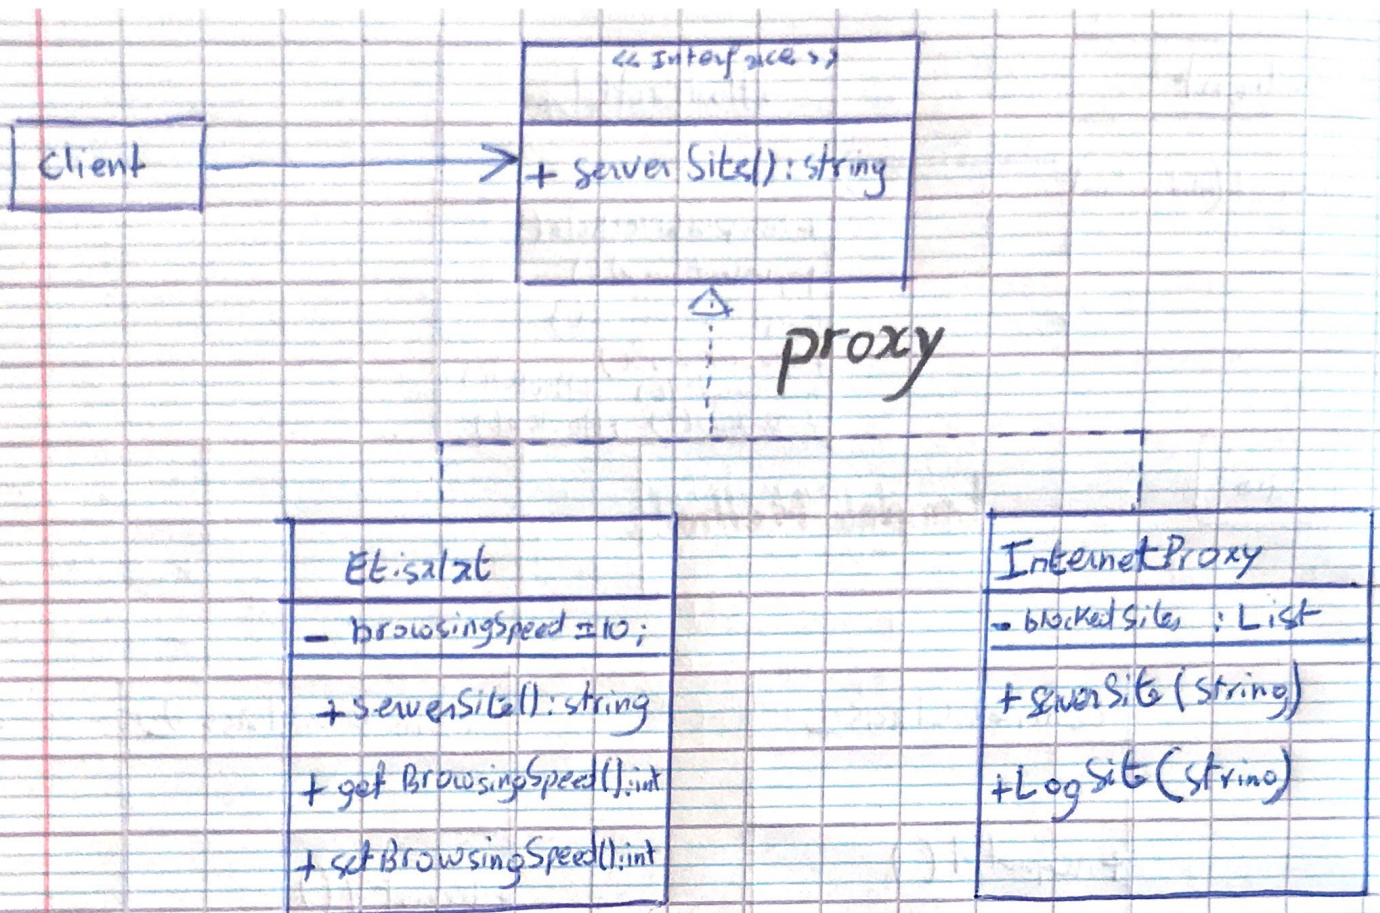 << Interface >>
Client
+ serverSite(): string
proxy
Etisalat
- browsingSpeed = 10;
+ serverSite(): string
+ getBrowsingSpeed(): int
+ setBrowsingSpeed(): int
InternetProxy
- blockedSites : List
+ serverSite (string)
+ LogSite (string)